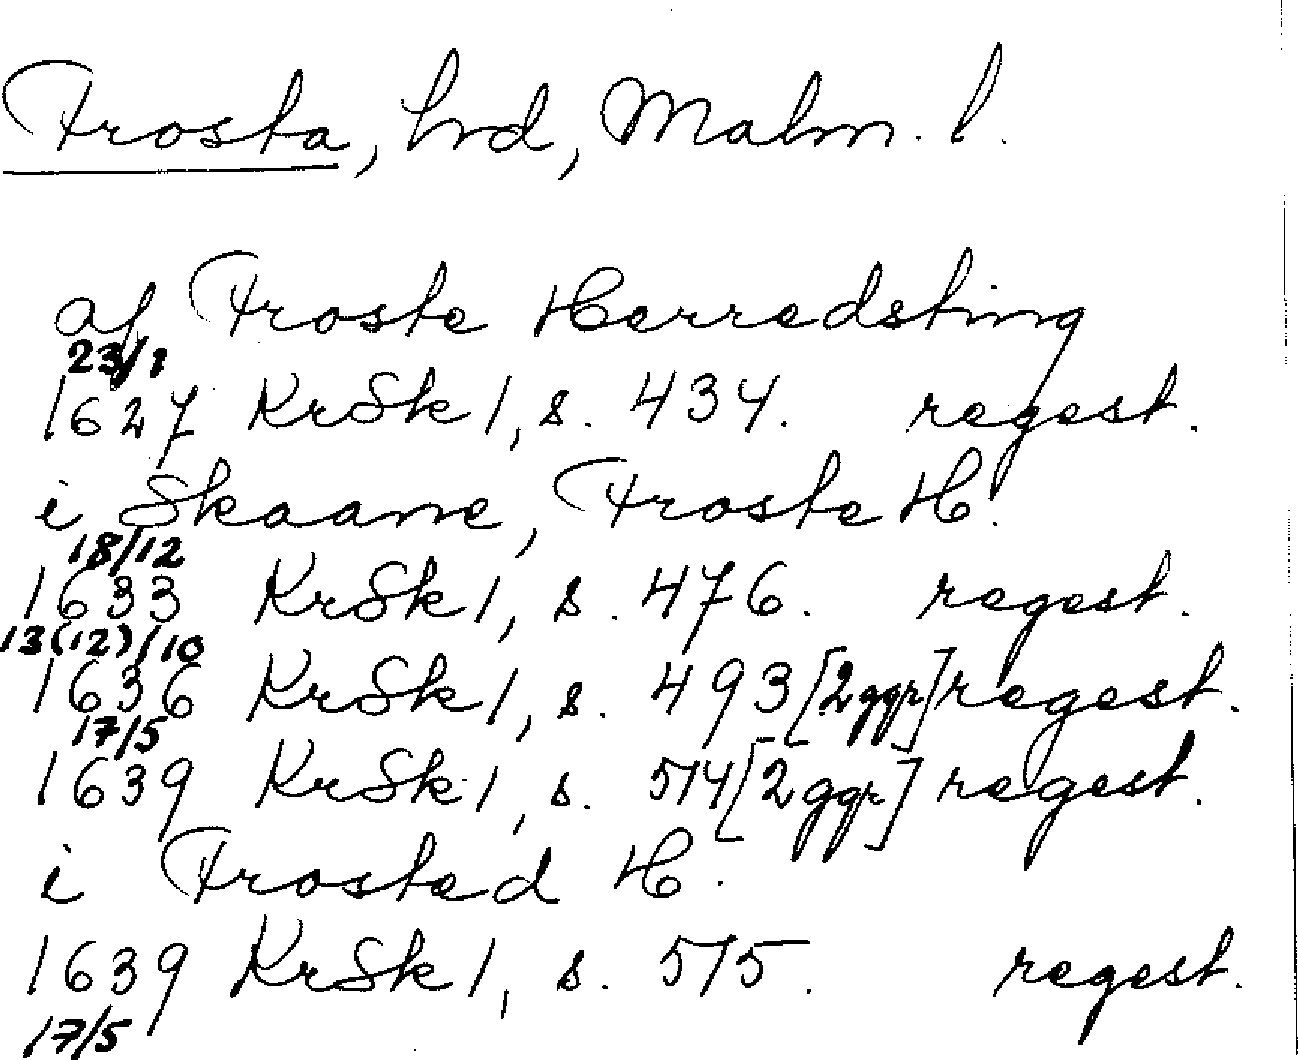 Frosta, hrd, Malm. l.
af Froste Herredsting
23/1
1627 KrSk 1, s. 434. regest.
i Skaane, Froste H.
18/12
1633 KrSk 1, s. 476. regest.
13(12)/10
1636 KrSk 1, s. 493 [2 ggr] regest.
17/5
1639 KrSk 1, s. 514 [2 ggr] regest.
i Frosted H.
1639 KrSk 1, s. 515. regest.
17/5